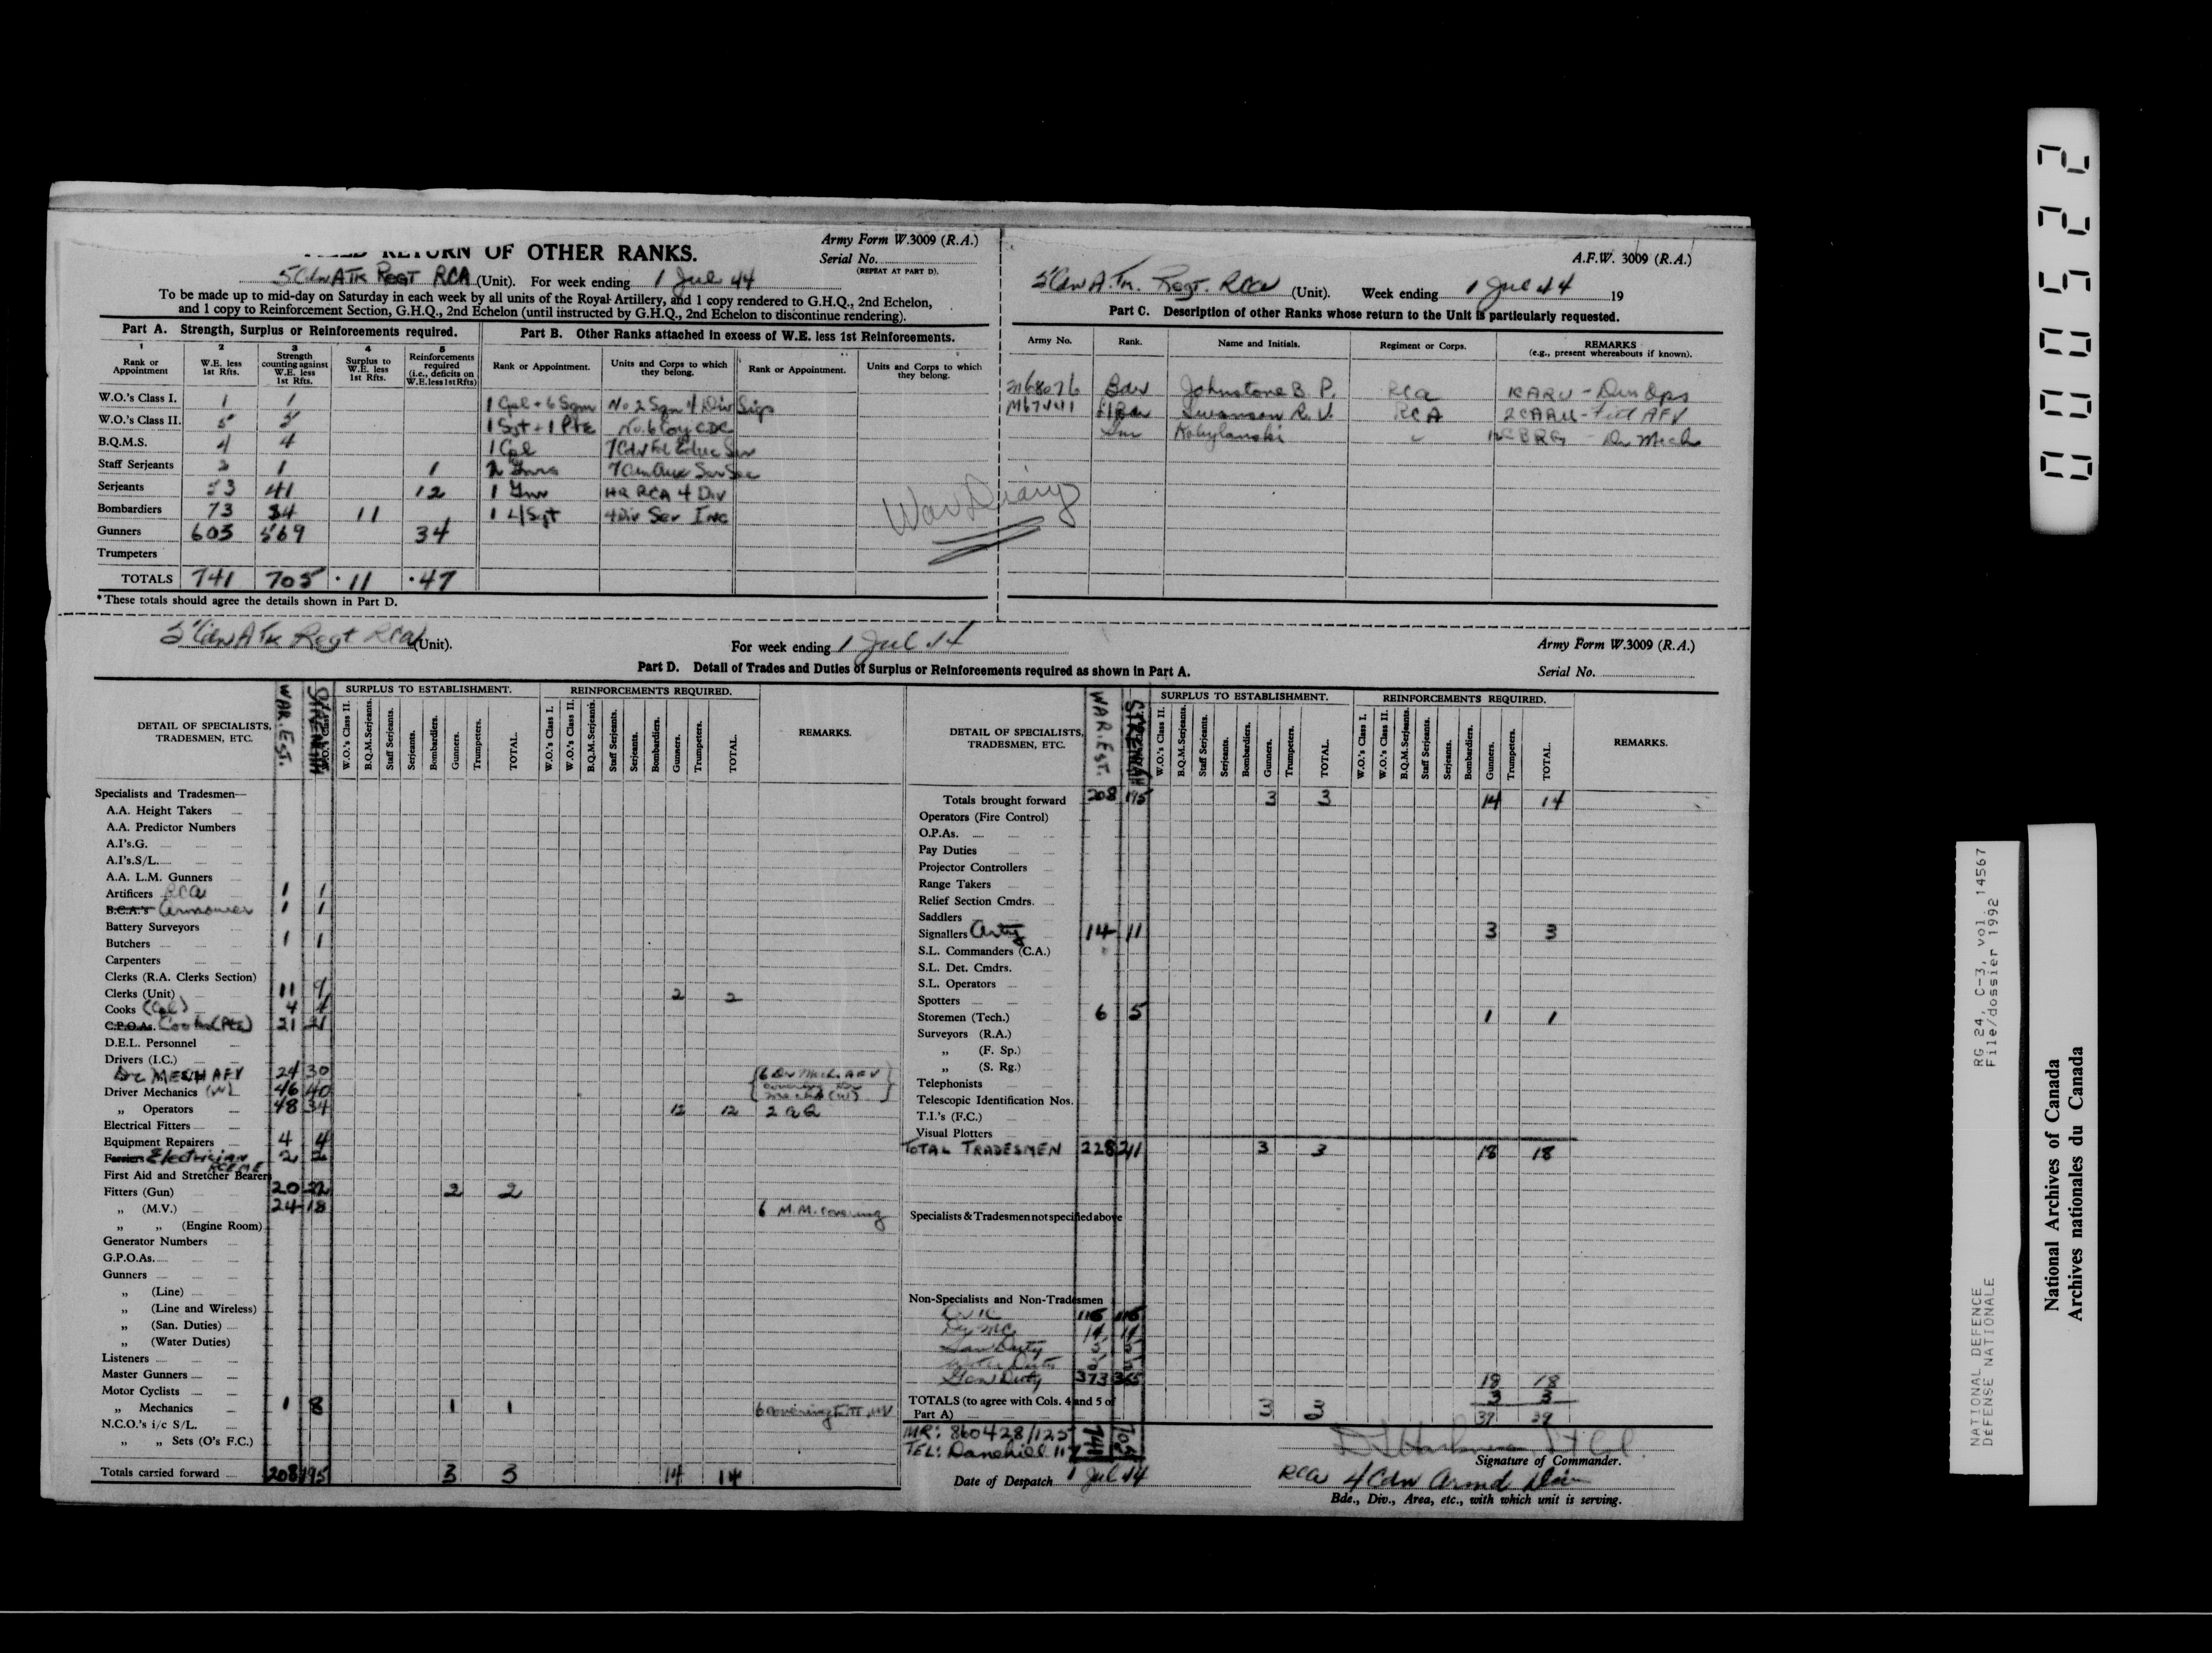 RETURN OF OTHER RANKS.
Army Form W.3009 (R.A.)
Serial No.
(REPEAT AT PART D).
5 Cdn ATk Regt RCA (Unit). For week ending 1 Jul 44
To be made up to mid-day on Saturday in each week by all units of the Royal Artillery, and 1 copy rendered to G.H.Q., 2nd Echelon,
and 1 copy to Reinforcement Section, G.H.Q., 2nd Echelon (until instructed by G.H.Q., 2nd Echelon to discontinue rendering).
Part A. Strength, Surplus or Reinforcements required.
1 2 3 4 5
Rank or Appointment
W.E. less 1st Rfts.
Strength counting against W.E. less 1st Rfts.
Surplus to W.E. less 1st Rfts.
Reinforcements required (i.e., deficits on W.E. less 1st Rfts)
W.O.'s Class I. 1 1
W.O.'s Class II. 5 5
B.Q.M.S. 4 4
Staff Serjeants 2 1 1
Serjeants 53 41 12
Bombardiers 73 84 11
Gunners 603 569 34
Trumpeters
TOTALS 741 705 11 47
*These totals should agree the details shown in Part D.
Part B. Other Ranks attached in excess of W.E. less 1st Reinforcements.
Rank or Appointment. Units and Corps to which they belong. Rank or Appointment. Units and Corps to which they belong.
1 Cpl + 6 Sgmn No 2 Sqn 4 Div Sigs
1 Sgt + 1 Pte No. 6 Coy CDC
1 Cpl 7 Cdn Fd Educ
2 Gnrs
1 Gnr HQ RCA 4 Div
1 L/Sgt 4 Div Ser Inc
War Diary
A.F.W. 3009 (R.A.)
5 Cdn A.Tk. Regt. RCA (Unit). Week ending 1 Jul 44 19
Part C. Description of other Ranks whose return to the Unit is particularly requested.
Army No. Rank. Name and Initials. Regiment or Corps. REMARKS (e.g., present whereabouts if known).
M68076 Bdr Johnstone B. P. RCA
M67441 Swanson R. V. RCA
Gnr Kobylanski
5 Cdn A Tk Regt RCA (Unit).
For week ending 1 Jul 44
Army Form W.3009 (R.A.)
Part D. Detail of Trades and Duties of Surplus or Reinforcements required as shown in Part A.
Serial No.
DETAIL OF SPECIALISTS, TRADESMEN, ETC.
WAR. EST.
STRENGTH
SURPLUS TO ESTABLISHMENT.
W.O.'s Class II. B.Q.M.Serjeants. Staff Serjeants. Serjeants. Bombardiers. Gunners. Trumpeters. TOTAL.
REINFORCEMENTS REQUIRED.
W.O.'s Class I. W.O.'s Class II. B.Q.M.Serjeants. Staff Serjeants. Serjeants. Bombardiers. Gunners. Trumpeters. TOTAL.
REMARKS.
Specialists and Tradesmen—
A.A. Height Takers
A.A. Predictor Numbers
A.I's.G.
A.I's.S/L.
A.A. L.M. Gunners
Artificers RCA 1 1
B.C.A.'s Armourer 1 1
Battery Surveyors
Butchers 1 1
Carpenters
Clerks (R.A. Clerks Section)
Clerks (Unit) 11 9 2 2
Cooks (Cpl) 4 4
C.P.O.As. Cooks (Pte) 21 21
D.E.L. Personnel
Drivers (I.C.)
Dr. MECH AFV 24 30
Driver Mechanics (W) 46 40
„ Operators 48 34 12 12
Electrical Fitters
Equipment Repairers 4 4
Electrician 2 2
First Aid and Stretcher Bearers
Fitters (Gun) 20 22 2 2
„ (M.V.) 24 18 6 M.M. covering
„ „ (Engine Room)
Generator Numbers
G.P.O.As.
Gunners
„ (Line)
„ (Line and Wireless)
„ (San. Duties)
„ (Water Duties)
Listeners
Master Gunners
Motor Cyclists
„ Mechanics 1 8 1 1
N.C.O.'s i/c S/L.
„ „ Sets (O's F.C.)
Totals carried forward 208 195 3 3 14 14
DETAIL OF SPECIALISTS, TRADESMEN, ETC.
WAR. EST.
STRENGTH
SURPLUS TO ESTABLISHMENT.
W.O.'s Class II. B.Q.M.Serjeants. Staff Serjeants. Serjeants. Bombardiers. Gunners. Trumpeters. TOTAL.
REINFORCEMENTS REQUIRED.
W.O.'s Class I. W.O.'s Class II. B.Q.M.Serjeants. Staff Serjeants. Serjeants. Bombardiers. Gunners. Trumpeters. TOTAL.
REMARKS.
Totals brought forward 208 195 3 3 14 14
Operators (Fire Control)
O.P.As.
Pay Duties
Projector Controllers
Range Takers
Relief Section Cmdrs.
Saddlers
Signallers Arty 14 11 3 3
S.L. Commanders (C.A.)
S.L. Det. Cmdrs.
S.L. Operators
Spotters
Storemen (Tech.) 6 5 1 1
Surveyors (R.A.)
„ (F. Sp.)
„ (S. Rg.)
Telephonists
Telescopic Identification Nos.
T.I.'s (F.C.)
Visual Plotters
TOTAL TRADESMEN 228 211 3 3 18 18
Specialists & Tradesmen not specified above
Non-Specialists and Non-Tradesmen
Dvr IC 116 116
Gen Duty 373 365 18 18
3 3
TOTALS (to agree with Cols. 4 and 5 of Part A) 741 705 3 3 39 39
MR: 860428/125
TEL: Danehill 117
Date of Despatch 1 Jul 44
Signature of Commander.
RCA 4 Cdn Armd Div
Bde., Div., Area, etc., with which unit is serving.
000522
RG 24, C-3, vol. 14567
File/dossier 1992
NATIONAL DEFENCE
DEFENSE NATIONALE
National Archives of Canada
Archives nationales du Canada